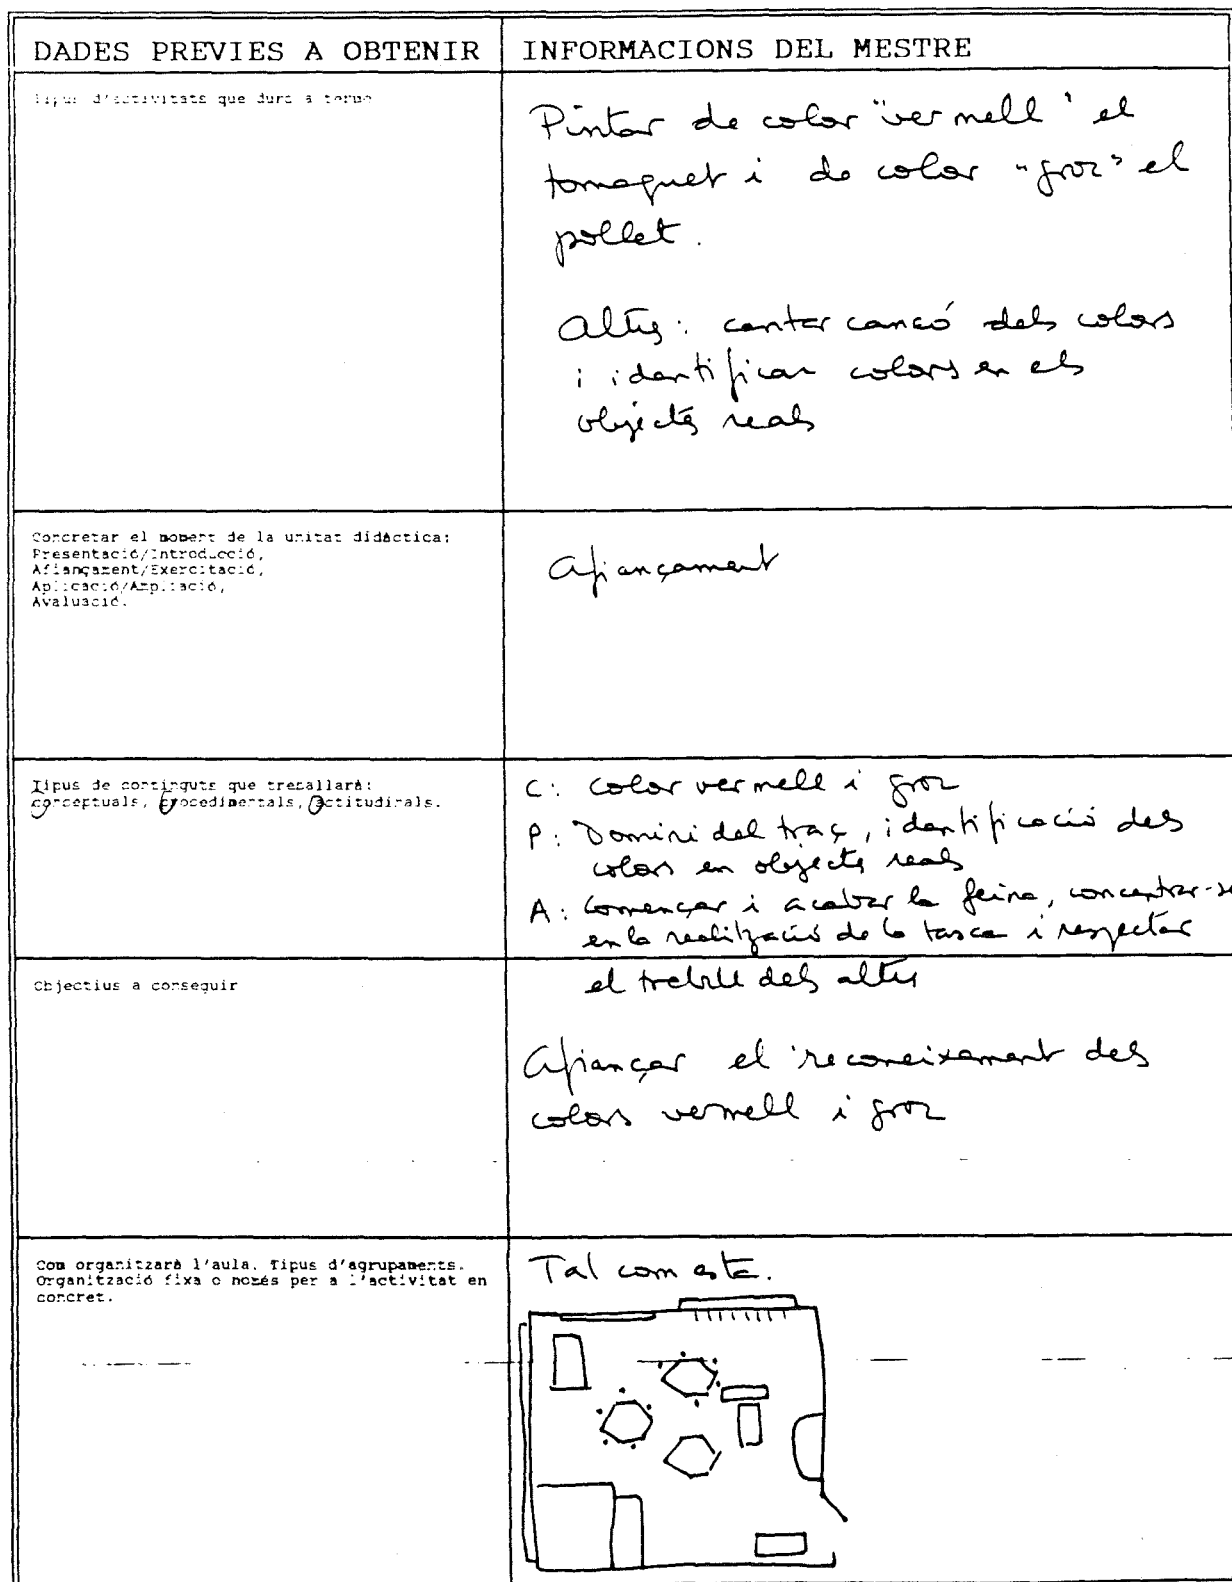 DADES PREVIES A OBTENIR
INFORMACIONS DEL MESTRE
Tipus d'activitats que durà a terme
Pintar de color "vermell" el
tomaquet i de color "groc" el
pollet.
Altres: cantar cançó dels colors
i identificar colors en els
objectes reals
Concretar el moment de la unitat didàctica:
Presentació/Introducció,
Afiançament/Exercitació,
Aplicació/Ampliació,
Avaluació.
Afiançament
Tipus de continguts que treballarà:
conceptuals, procedimentals, actitudinals.
C: Color vermell i groc
P: Domini del traç, identificació dels
colors en objectes reals
A: Començar i acabar la feina, concentrar-se
en la realització de la tasca i respectar
el treball dels altres
Objectius a conseguir
Afiançar el reconeixement dels
colors vermell i groc
Com organitzarà l'aula. Tipus d'agrupaments.
Organització fixa o només per a l'activitat en
concret.
Tal com esta.